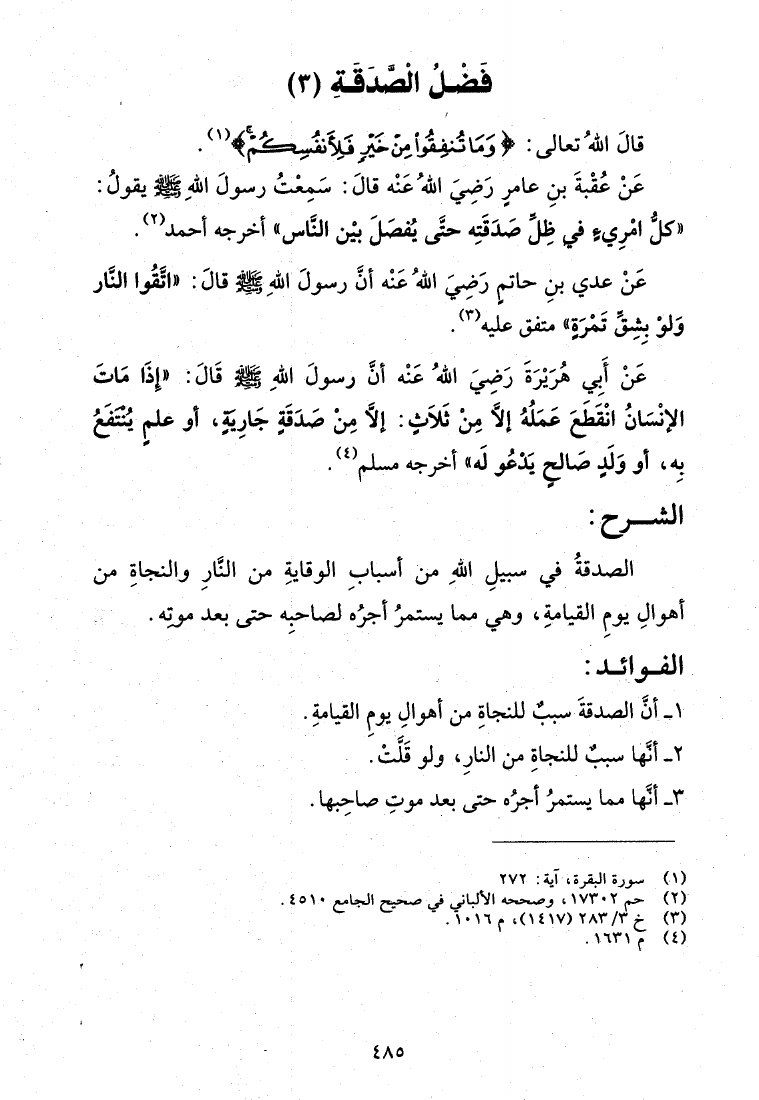 فَضْلُ الْصَّدَقَةِ (٣)
قالَ اللهُ تعالى: ﴿وَمَا تُنفِقُوا۟ مِنْ خَيْرٍ فَلِأَنفُسِكُمْ ۚ﴾(١).
عَنْ عُقْبةَ بنِ عامرٍ رَضِيَ اللهُ عَنْه قالَ: سَمِعْتُ رسولَ اللهِ ﷺ يقولُ:
«كلُّ امْرِيءٍ في ظِلِّ صَدَقَتِه حتَّى يُفصَلَ بيْن النَّاس» أخرجه أحمد(٢).
عَنْ عدي بنِ حاتمٍ رَضِيَ اللهُ عَنْه أنَّ رسولَ اللهِ ﷺ قالَ: «اتَّقُوا النَّار
وَلوْ بِشِقِّ تَمْرَةٍ» متفق عليه(٣).
عَنْ أَبِي هُرَيْرَةَ رَضِيَ اللهُ عَنْه أنَّ رسولَ اللهِ ﷺ قَالَ: «إِذَا مَاتَ
الإنْسَانُ انْقَطَعَ عَمَلُهُ إلاَّ مِنْ ثَلاَثٍ: إلاَّ مِنْ صَدَقَةٍ جَارِيَةٍ، أو علمٍ يُنْتَفَعُ
بِه، أو وَلَدٍ صَالحٍ يَدْعُو لَه» أخرجه مسلم(٤).
الشـــرح:
الصدقةُ في سبيلِ اللهِ من أسبابِ الوقايةِ من النَّارِ والنجاةِ من
أهوالِ يومِ القيامةِ، وهي مما يستمرُ أجرُه لصاحبِه حتى بعد موتِه.
الفـوائـد:
١ـ أنَّ الصدقةَ سببٌ للنجاةِ من أهوالِ يومِ القيامةِ.
٢ـ أنَّها سببٌ للنجاةِ من النارِ، ولو قَلَّتْ.
٣ـ أنَّها مما يستمرُ أجرُه حتى بعد موتِ صاحِبها.
(١) سورة البقرة، آية: ٢٧٢
(٢) حم ١٧٣٠٢، وصححه الألباني في صحيح الجامع ٤٥١٠.
(٣) خ ٣/ ٢٨٣ (١٤١٧)، م ١٠١٦.
(٤) م ١٦٣١.
٤٨٥